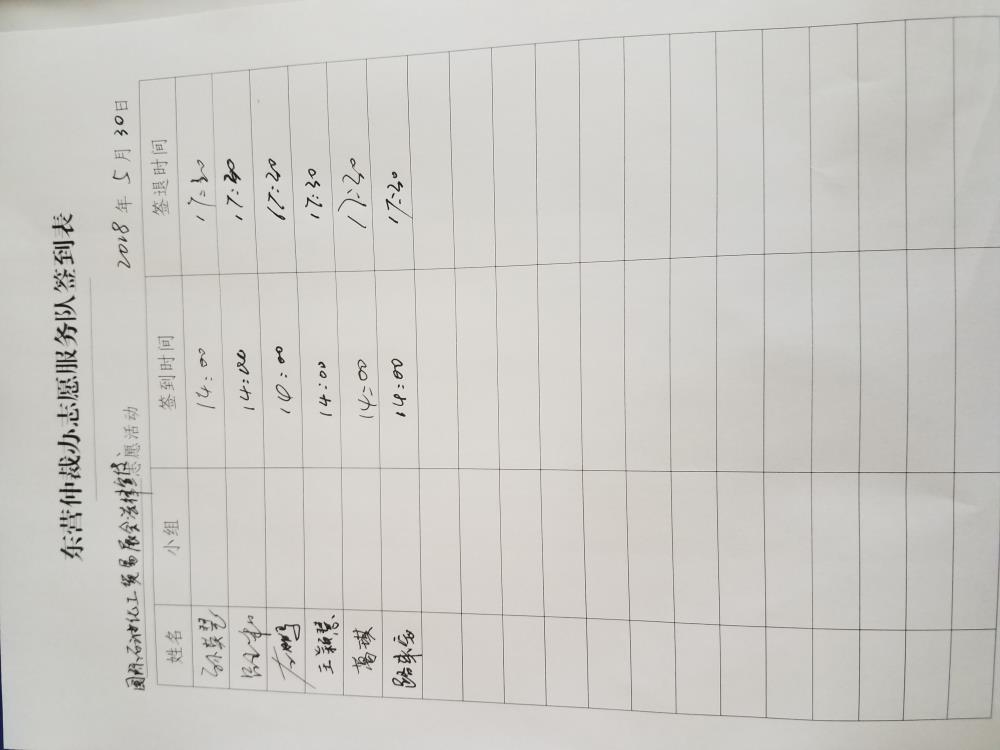 东营仲裁办志愿服务队签到表
国际石油化工贸易展会法律宣传志愿活动 2018年5月30日
姓名 小组 签到时间 签退时间
孙英翠 14:00 17:30
14:00 17:30
14:00 17:30
王颖慧 14:00 17:30
葛琪 14:00 17:30
14:00 17:30